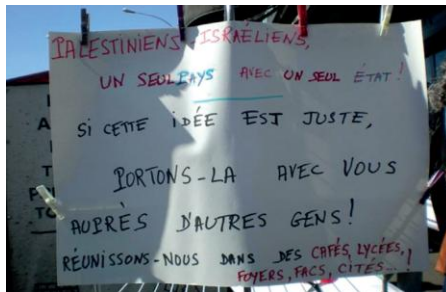 PALESTINIENS, ISRAÉLIENS,
UN SEUL PAYS AVEC UN SEUL ÉTAT !
SI CETTE IDÉE EST JUSTE,
PORTONS-LA AVEC VOUS
AUPRÈS D'AUTRES GENS !
RÉUNISSONS-NOUS DANS DES CAFÉS, LYCÉES,
FOYERS, FACS, CITÉS... !